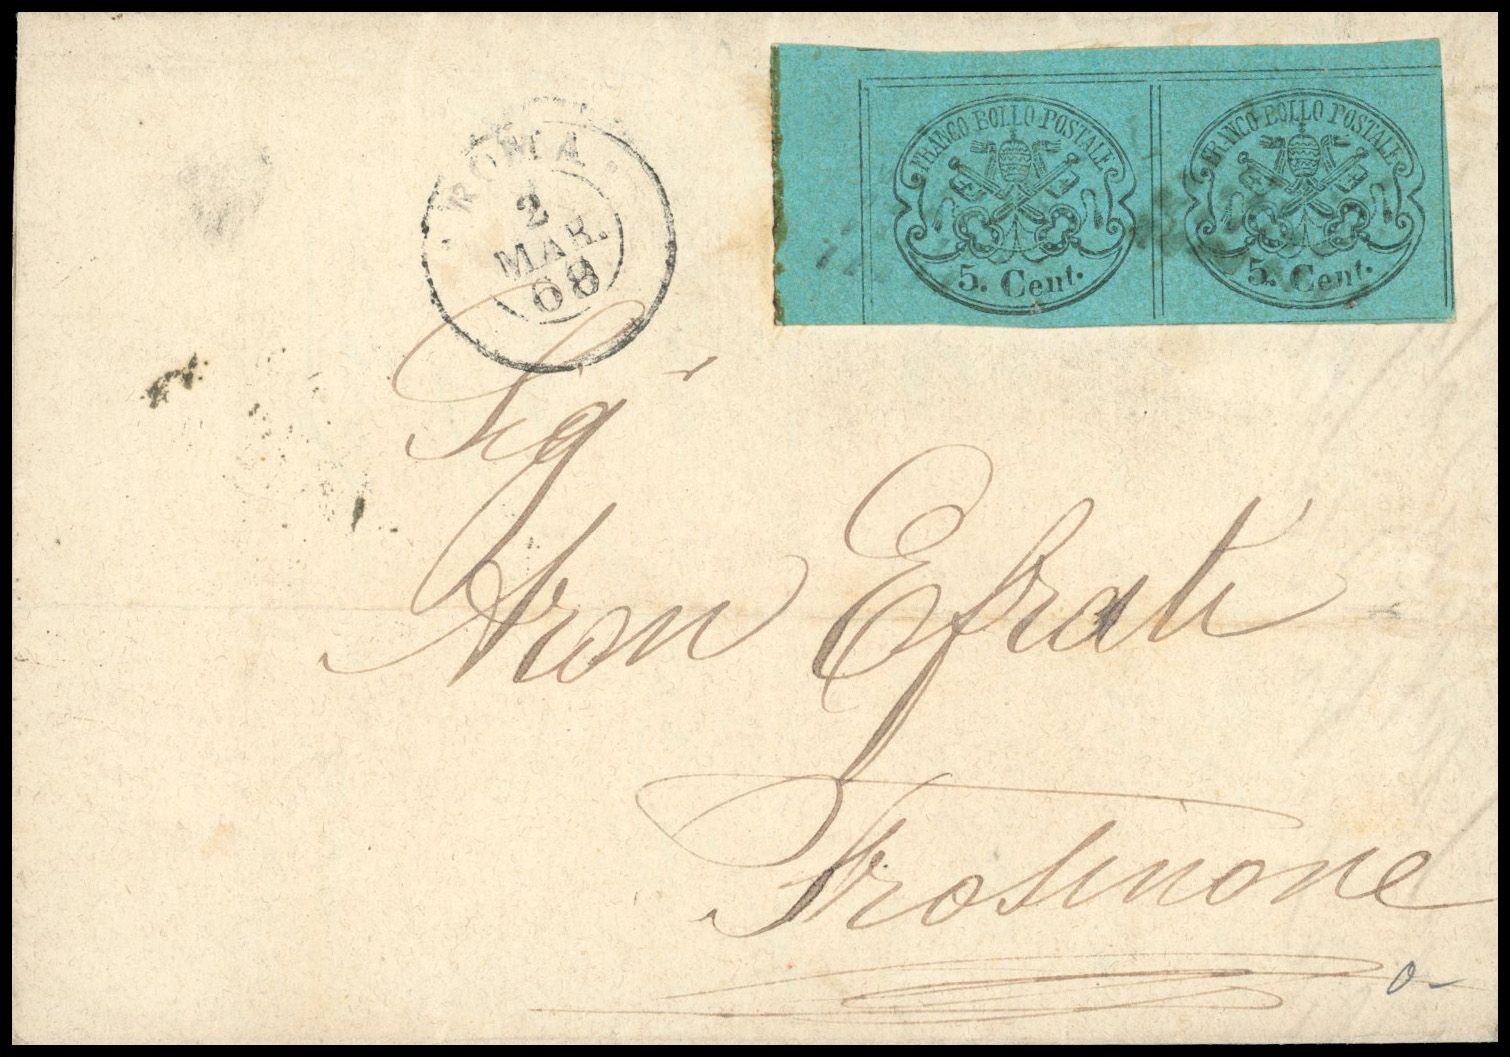 ROMA
2
MAR.
68
FRANCO BOLLO POSTALE
5. Cent.
FRANCO BOLLO POSTALE
5. Cent.
Sig
Aron Efrati
Frosinone